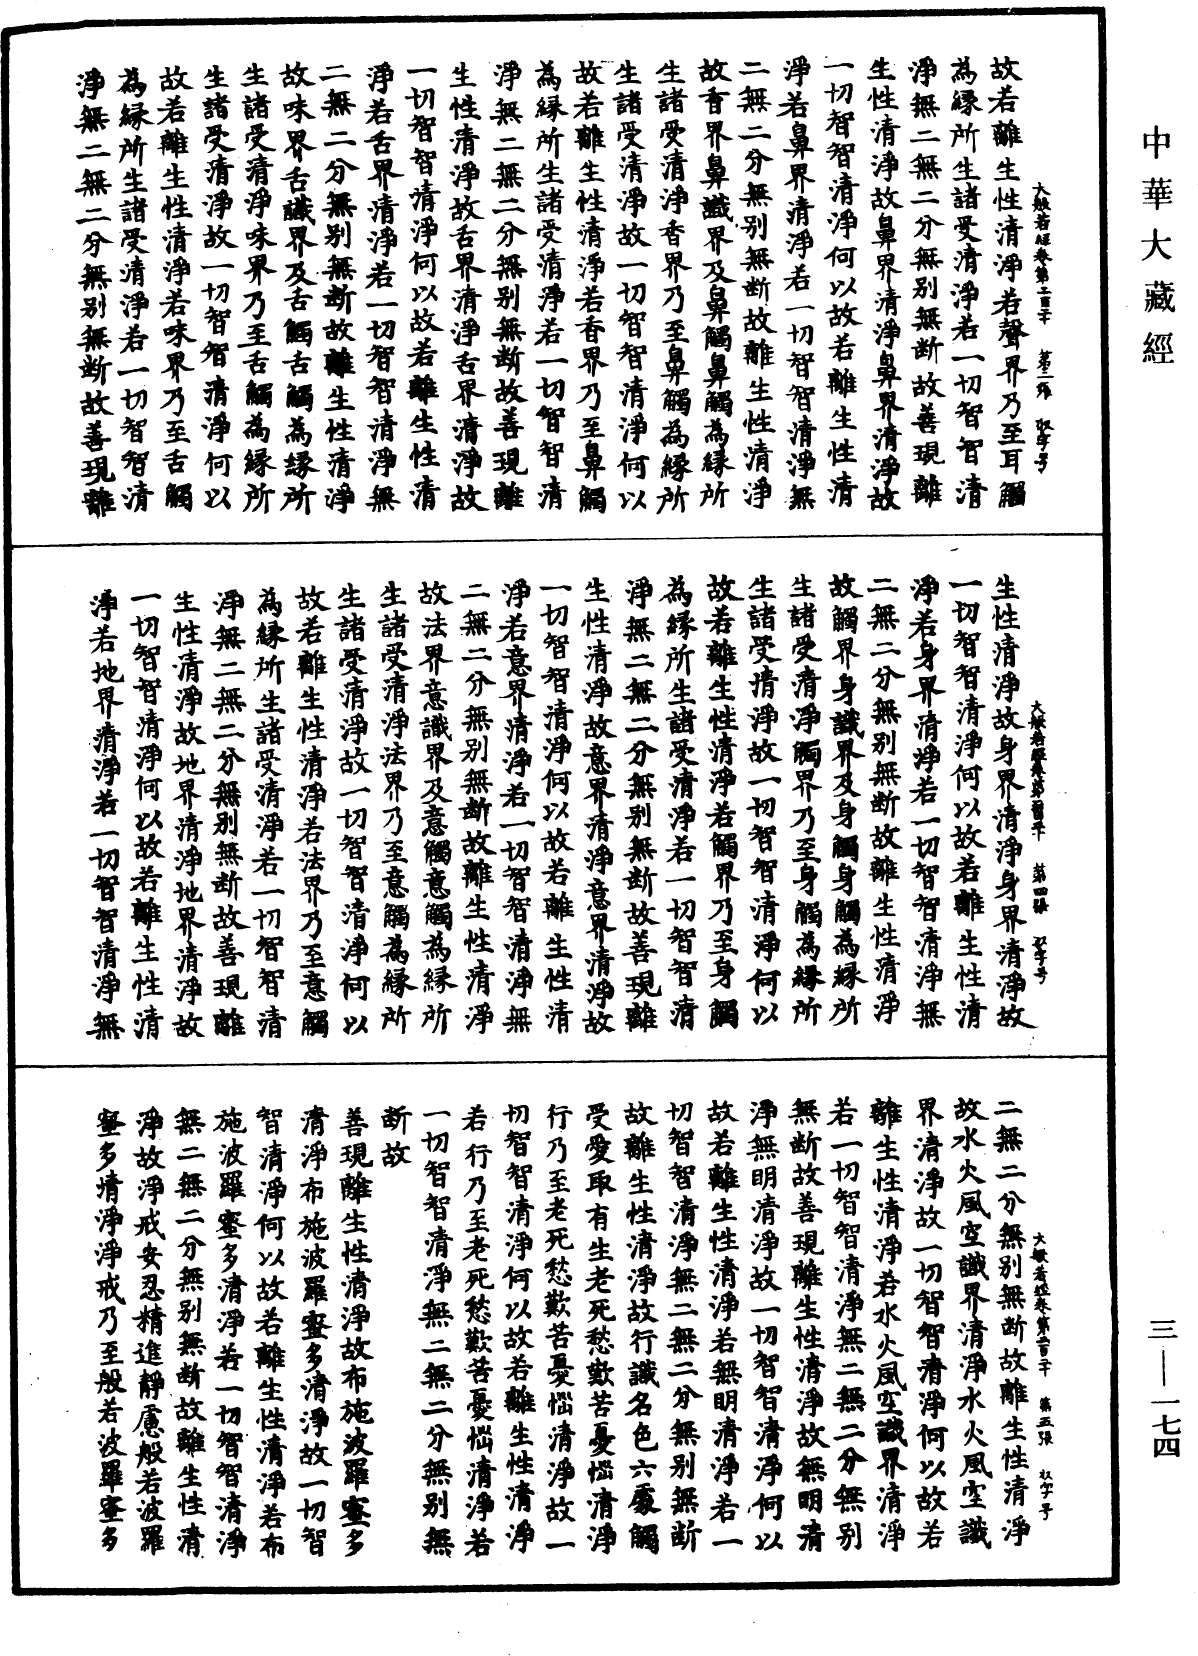 中華大藏經
故若離生性清淨若聲界乃至耳觸
為緣所生諸受清淨若一切智智清
淨無二無二分無別無斷故善現離
生性清淨故鼻界清淨鼻界清淨故
一切智智清淨何以故若離生性清
淨若鼻界清淨若一切智智清淨無
二無二分無別無斷故離生性清淨
故香界鼻識界及鼻觸鼻觸為緣所
生諸受清淨香界乃至鼻觸為緣所
生諸受清淨故一切智智清淨何以
故若離生性清淨若香界乃至鼻觸
為緣所生諸受清淨若一切智智清
淨無二無二分無別無斷故善現離
生性清淨故舌界清淨舌界清淨故
一切智智清淨何以故若離生性清
淨若舌界清淨若一切智智清淨無
二無二分無別無斷故離生性清淨
故味界舌識界及舌觸舌觸為緣所
生諸受清淨味界乃至舌觸為緣所
生諸受清淨故一切智智清淨何以
故若離生性清淨若味界乃至舌觸
為緣所生諸受清淨若一切智智清
淨無二無二分無別無斷故善現離
大般若經卷第二百二十 第三張 奴字号
生性清淨故身界清淨身界清淨故
一切智智清淨何以故若離生性清
淨若身界清淨若一切智智清淨無
二無二分無別無斷故離生性清淨
故觸界身識界及身觸身觸為緣所
生諸受清淨觸界乃至身觸為緣所
生諸受清淨故一切智智清淨何以
故若離生性清淨若觸界乃至身觸
為緣所生諸受清淨若一切智智清
淨無二無二分無別無斷故善現離
生性清淨故意界清淨意界清淨故
一切智智清淨何以故若離生性清
淨若意界清淨若一切智智清淨無
二無二分無別無斷故離生性清淨
故法界意識界及意觸意觸為緣所
生諸受清淨法界乃至意觸為緣所
生諸受清淨故一切智智清淨何以
故若離生性清淨若法界乃至意觸
為緣所生諸受清淨若一切智智清
淨無二無二分無別無斷故善現離
生性清淨故地界清淨地界清淨故
一切智智清淨何以故若離生性清
淨若地界清淨若一切智智清淨無
大般若經卷第二百二十 第四張 奴字号
二無二分無別無斷故離生性清淨
故水火風空識界清淨水火風空識
界清淨故一切智智清淨何以故若
離生性清淨若水火風空識界清淨
若一切智智清淨無二無二分無別
無斷故善現離生性清淨故無明清
淨無明清淨故一切智智清淨何以
故若離生性清淨若無明清淨若一
切智智清淨無二無二分無別無斷
故離生性清淨故行識名色六處觸
受愛取有生老死愁歎苦憂惱清淨
行乃至老死愁歎苦憂惱清淨故一
切智智清淨何以故若離生性清淨
若行乃至老死愁歎苦憂惱清淨若
一切智智清淨無二無二分無別無
斷故
善現離生性清淨故布施波羅蜜多
清淨布施波羅蜜多清淨故一切智
智清淨何以故若離生性清淨若布
施波羅蜜多清淨若一切智智清淨
無二無二分無別無斷故離生性清
淨故淨戒安忍精進靜慮般若波羅
蜜多清淨淨戒乃至般若波羅蜜多
大般若經卷第二百二十 第五張 奴字号
三—一七四